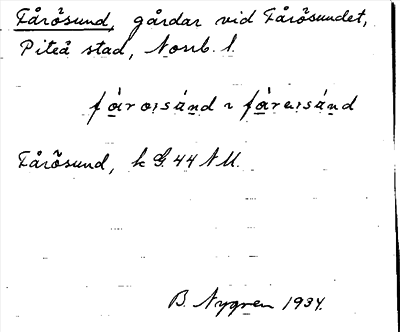 Fårösund, gårdar vid Fårösundet,
Piteå stad, Norrb. l.
Fårösund, k G. 44 N U.
B. Nygren 1934.